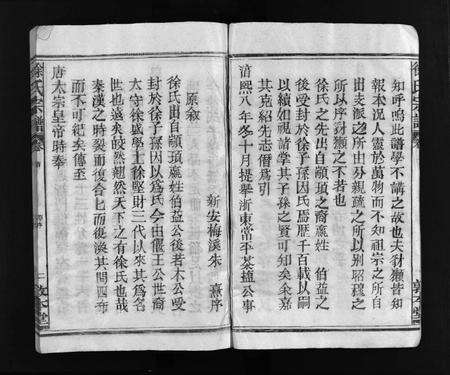 徐氏宗譜
知呼嗚此譜學不講之故也夫豺獺皆知
報本况人靈於萬物而不知祖宗之所自
出支派之所以分外親疏之所以别昭穆之
所以序豺獺之不若也
徐氏之先出自顓頊之裔嬴姓 伯益之
後受封於徐子孫因氏焉歷千百載以嗣
以續如視諸掌其子孫之賢可知矣余嘉
其克紹先志僭爲引
淳熙八年冬十月提舉浙東常平茶塩公事
新安梅溪朱 熹序
原敘
徐氏出自顓頊嬴姓伯益公後若木公受
封於徐子孫因以爲氏今由偃王公世裔
太守徐盛學士徐堅財三代以來其爲名
世也遠矣皎然翹然天下之有徐氏也哉
秦漢之時裂而復合比而復渙其間四奔
而不可紀矣傳至
唐太宗皇帝時奉
徐氏宗譜
二 敦本堂